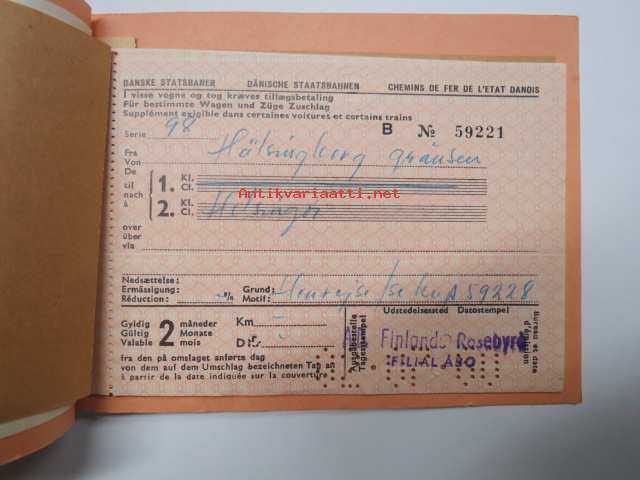 DANSKE STATSBANER DÄNISCHE STAATSBAHNEN CHEMINS DE FER DE L'ETAT DANOIS
I visse vogne og tog kræves tillægsbetaling
Für bestimmte Wagen und Züge Zuschlag
Supplément exigible dans certaines voitures et certains trains
Serie 98 B № 59221
Fra
Von
De
Hälsingborg gränsen
til
nach
à
1. Kl. Cl.
2. Kl. Cl.
Helsingör
Antikvariaatti.net
over
über
via
Nedsættelse:
Ermässigung:
Réduction: %
Grund:
Motif:
Henrejse se kup 59228
Gyldig
Gültig
Valable
2
måneder
Monate
mois
Km
fra den på omslaget anførte dag
von dem auf dem Umschlag bezeichneten Tag ab
à partir de la date indiquée sur la couverture
Ausgabestelle
Tagesstempel
Udstedelsessted Datostempel
Finlands Resebyrå
FILIAL ÅBO